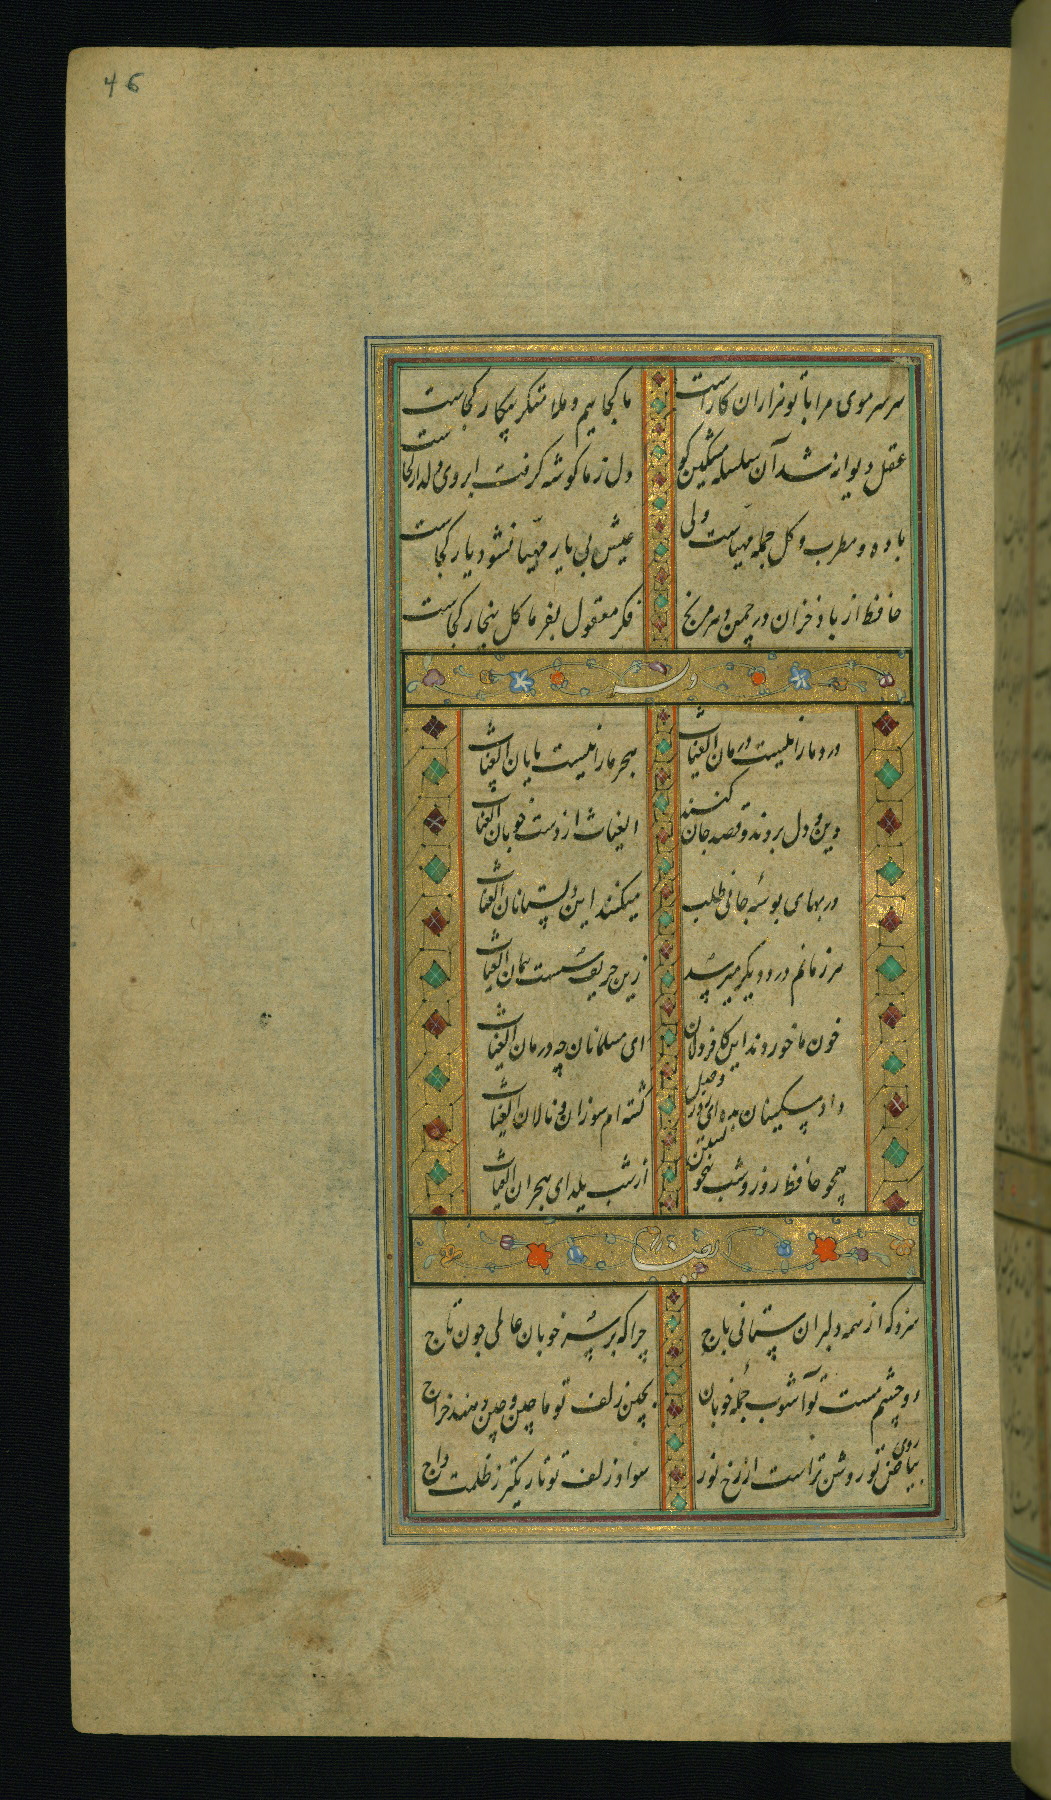 46
هر سر موی مرا با تو هزاران کار است ما کجاییم و ملامتگر بیکار کجاست
عقل دیوانه شد آن سلسله مشکین کو دل ز ما گوشه گرفت ابروی دلدار کجاست
باده و مطرب و گل جمله مهیاست ولی عیش بی یار مهیا نشود یار کجاست
حافظ از باد خزان در چمن دهر مرنج فکر معقول بفرما گل بیخار کجاست
وله
درد ما را نیست درمان الغیاث هجر ما را نیست پایان الغیاث
دین و دل بردند و قصد جان کنند الغیاث از دست خوبان الغیاث
در بهای بوسهٔ جانی طلب میکنند این دلستانان الغیاث
هر زمانم درد دیگر میرسد زین حریف همان الغیاث
خون ما خوردند این کافردلان ای مسلمانان چه درمان الغیاث
داد مسکینان بده ای روز وصل گشته ام سوزان و نالان الغیاث
همچو حافظ روز و شب بی خویشتن از شب یلدای هجران الغیاث
ایضا
سزد که از همه دلبران ستانی باج چرا که بر سر خوبان عالمی چون تاج
دو چشم مست تو آشوب جملهٔ خوبان بچین زلف تو ماچین و چین و هند خراج
بیاض روی تو روشن تر است از رخ نور سواد زلف تو تاریکتر ز ظلمت داج